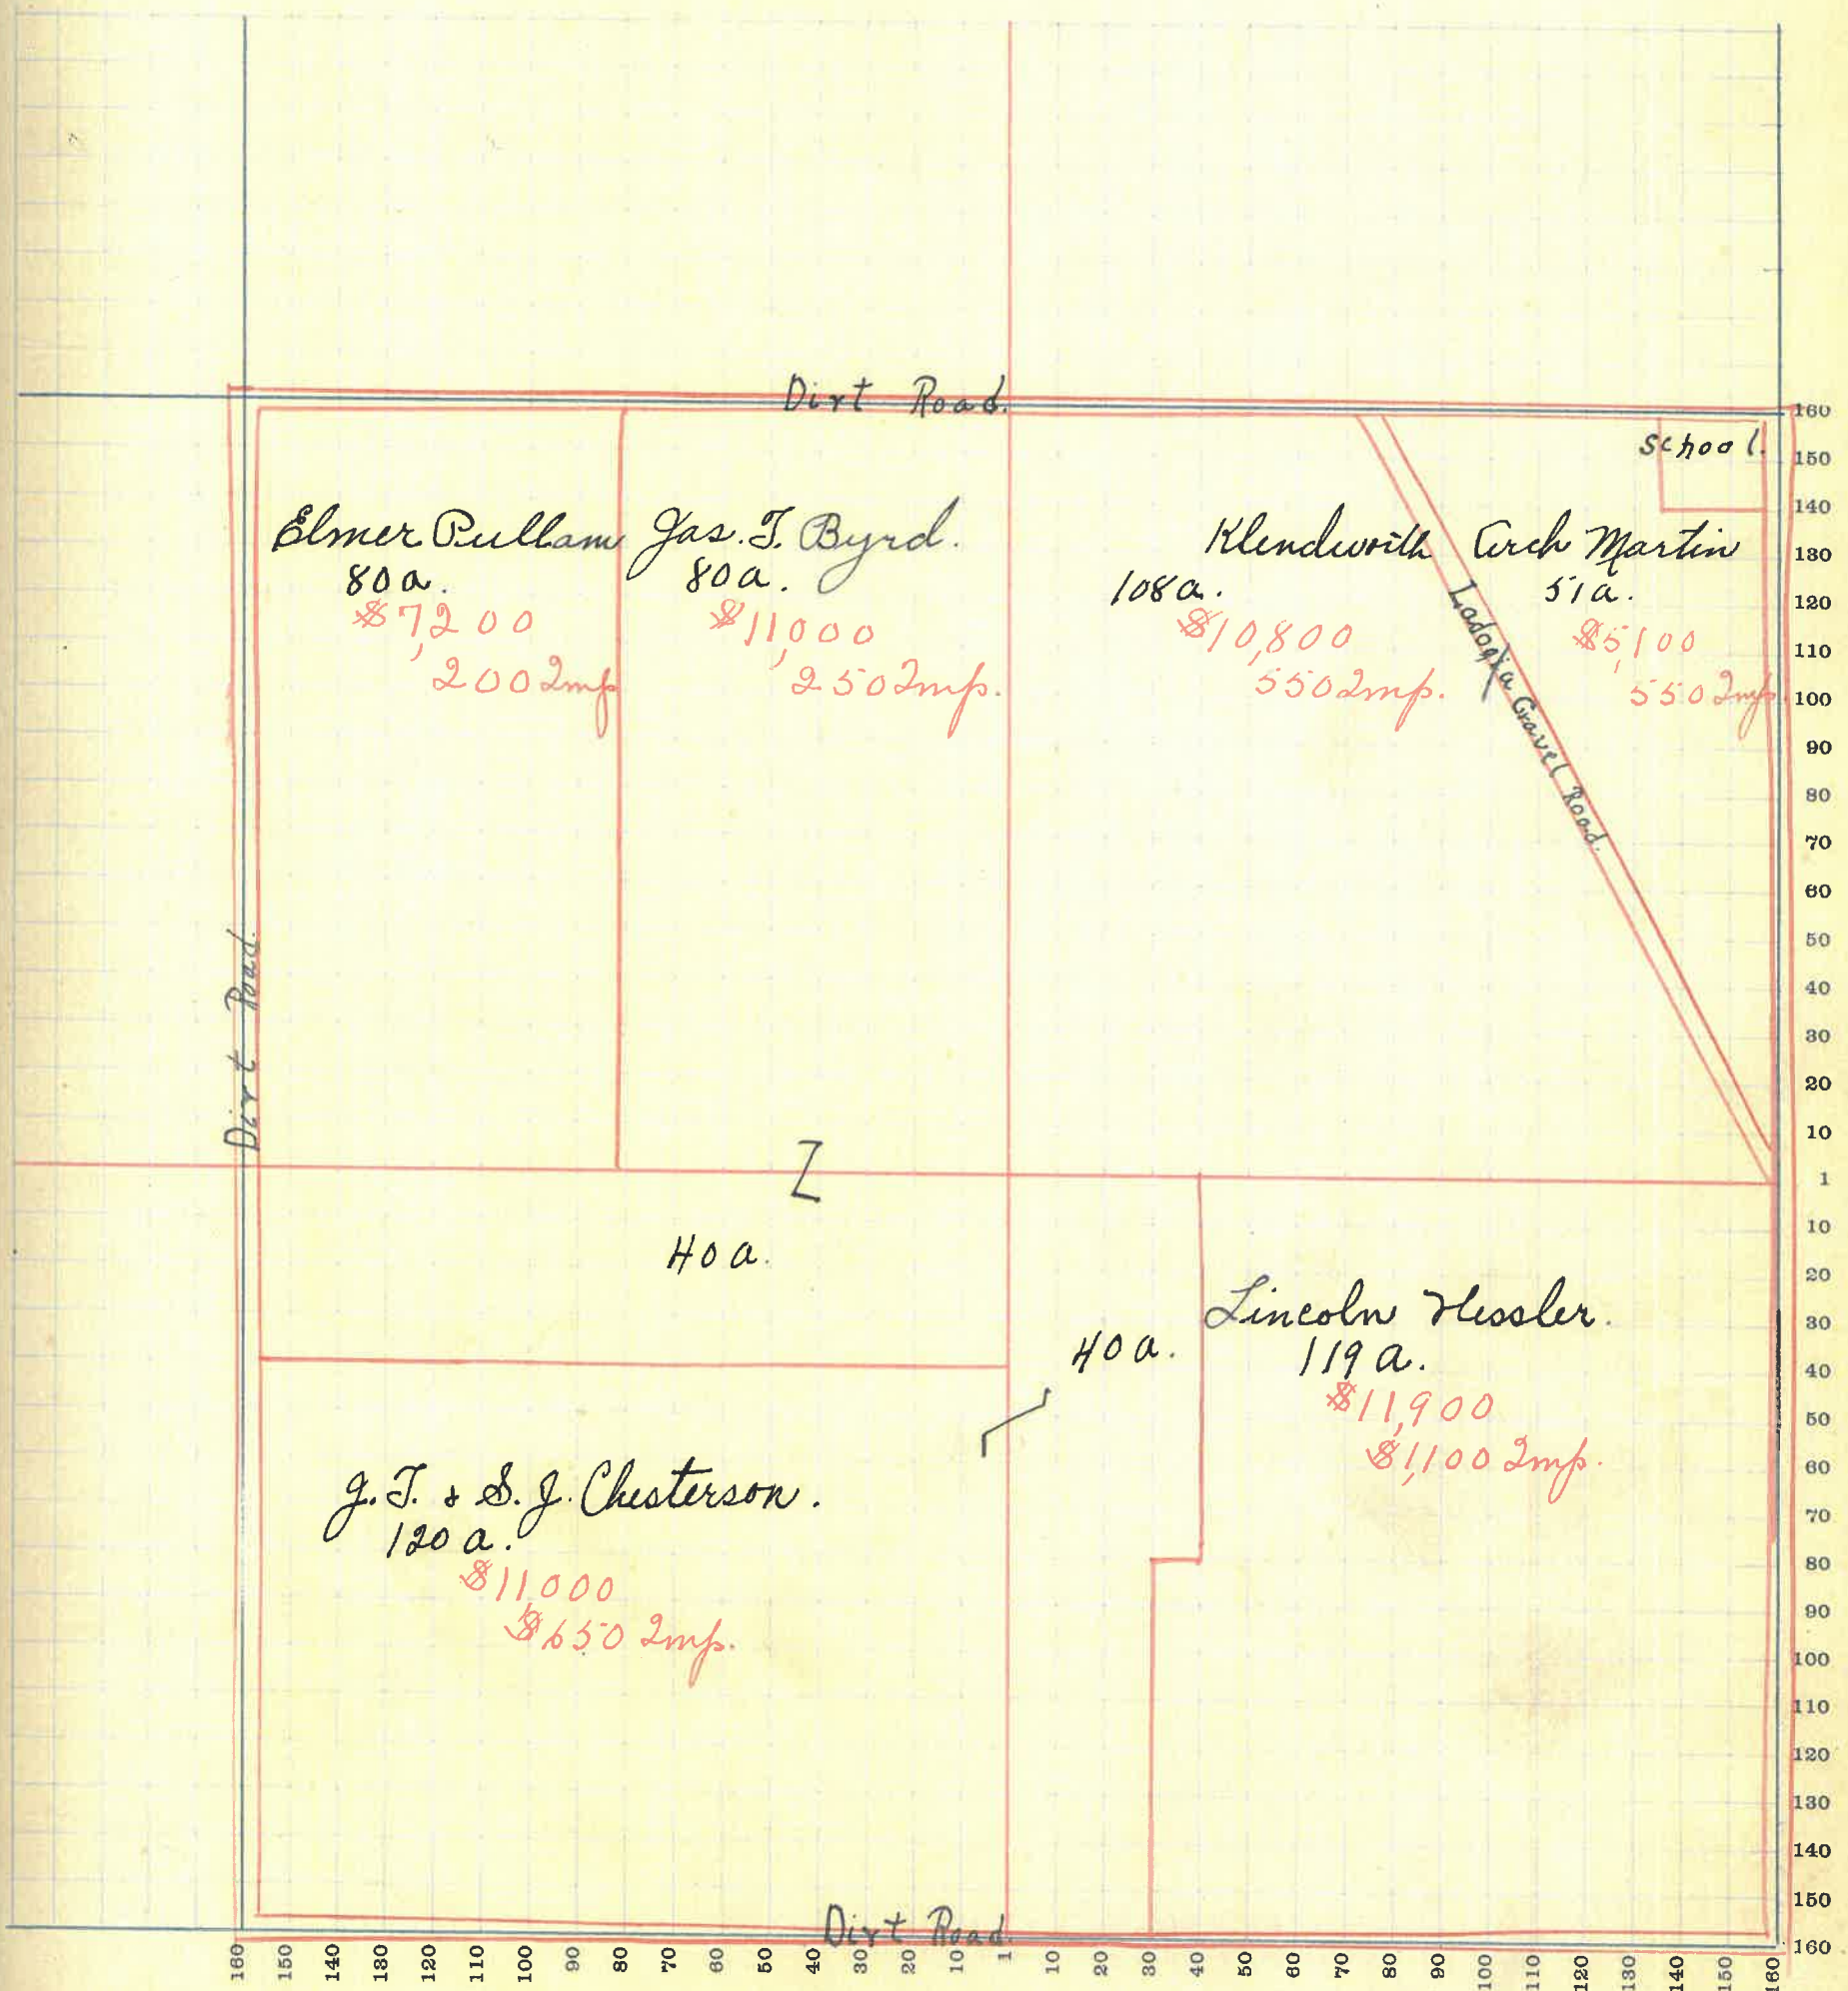 Dirt Road.
School.
Elmer Pullam
80a.
$7,200
200 Imp
Jas. T. Byrd.
80a.
$11,000
250 Imp.
Klendworth
108a.
$10,800
550 Imp.
Arch Martin
51a.
$5,100
550 Imp.
Ladogia Gravel Road.
Dirt Road.
40a.
40a.
Lincoln Hessler.
119a.
$11,900
$1,100 Imp.
J. T. & S. J. Chesterson.
120a.
$11,000
$650 Imp.
Dirt Road.
160
150
140
130
120
110
100
90
80
70
60
50
40
30
20
10
1
10
20
30
40
50
60
70
80
90
100
110
120
130
140
150
160
160 150 140 130 120 110 100 90 80 70 60 50 40 30 20 10 1 10 20 30 40 50 60 70 80 90 100 110 120 130 140 150 160